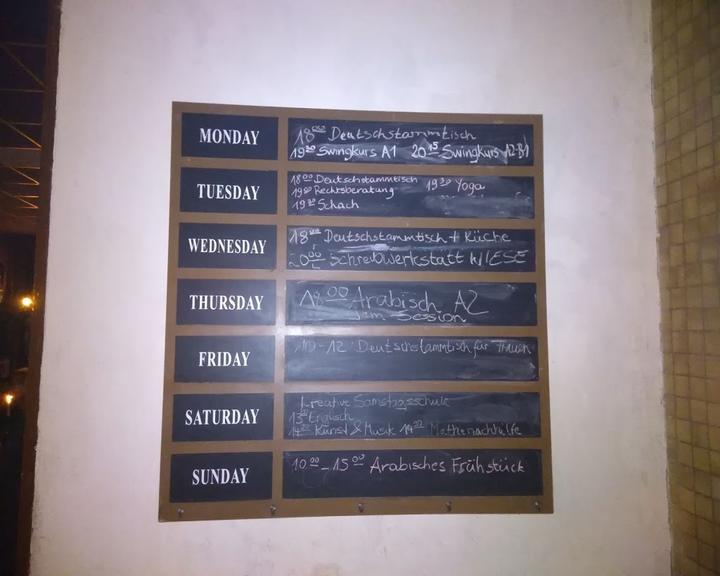 MONDAY
18 00 Deutschstammtisch
19 30 Swingkurs A1 20 15 Swingkurs A2-B1
TUESDAY
18 00 Deutschstammtisch
19 00 Rechtsberatung 19 30 Yoga
19 30 Schach
WEDNESDAY
18 00 Deutschstammtisch + Küche
20 00 Schreibwerkstatt
THURSDAY
18 00 Arabisch A2
Jam Session
FRIDAY
10-12 Deutschstammtisch für Frauen
SATURDAY
Kreative Samstagsschule
13 00 Englisch
14 00 Kunst & Musik 14 00 Mathenachhilfe
SUNDAY
10 00 - 15 00 Arabisches Frühstück